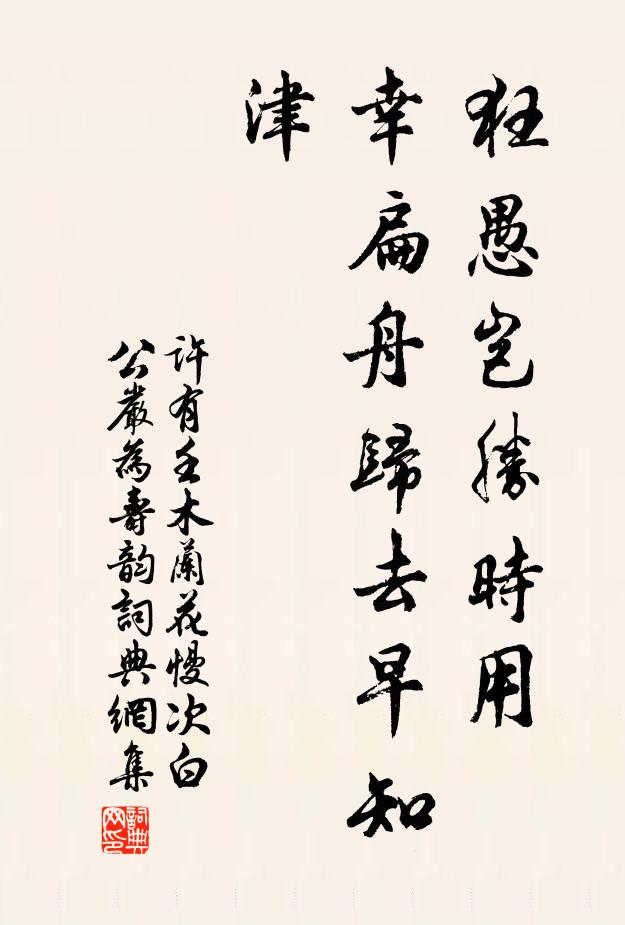 狂愚岂勝時用
幸扁舟歸去早知
津
許有壬木蘭花慢次白
公嚴為壽韵詞典網集
詞典
网印